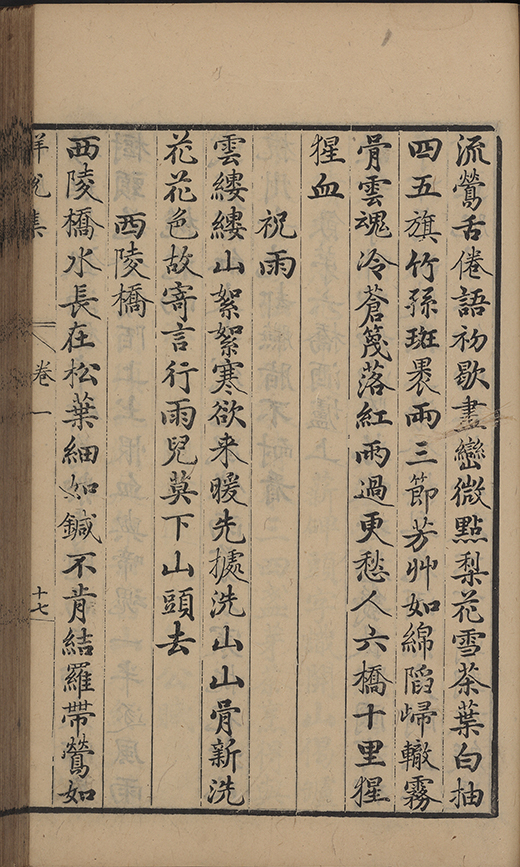 流鶯舌倦語初歇畫巒微點梨花雪茶葉白抽
四五旗竹孫斑褁兩三節芳艸如綿蹈歸轍霧
骨雲魂冷蒼篾落紅雨過更愁人六橋十里猩
猩血
祝雨
雲縷縷山絮絮寒欲来暖先據洗山山骨新洗
花花色故寄言行雨兒莫下山頭去
西陵橋
西陵橋水長在松葉細如鍼不肯結羅帶鶯如
集 卷一 十七